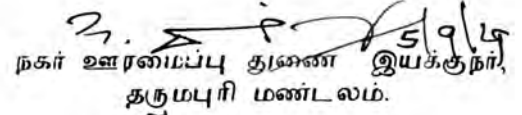 5/9/14
நகர் ஊரமைப்பு துணை இயக்குநர்,
தருமபுரி மண்டலம்.